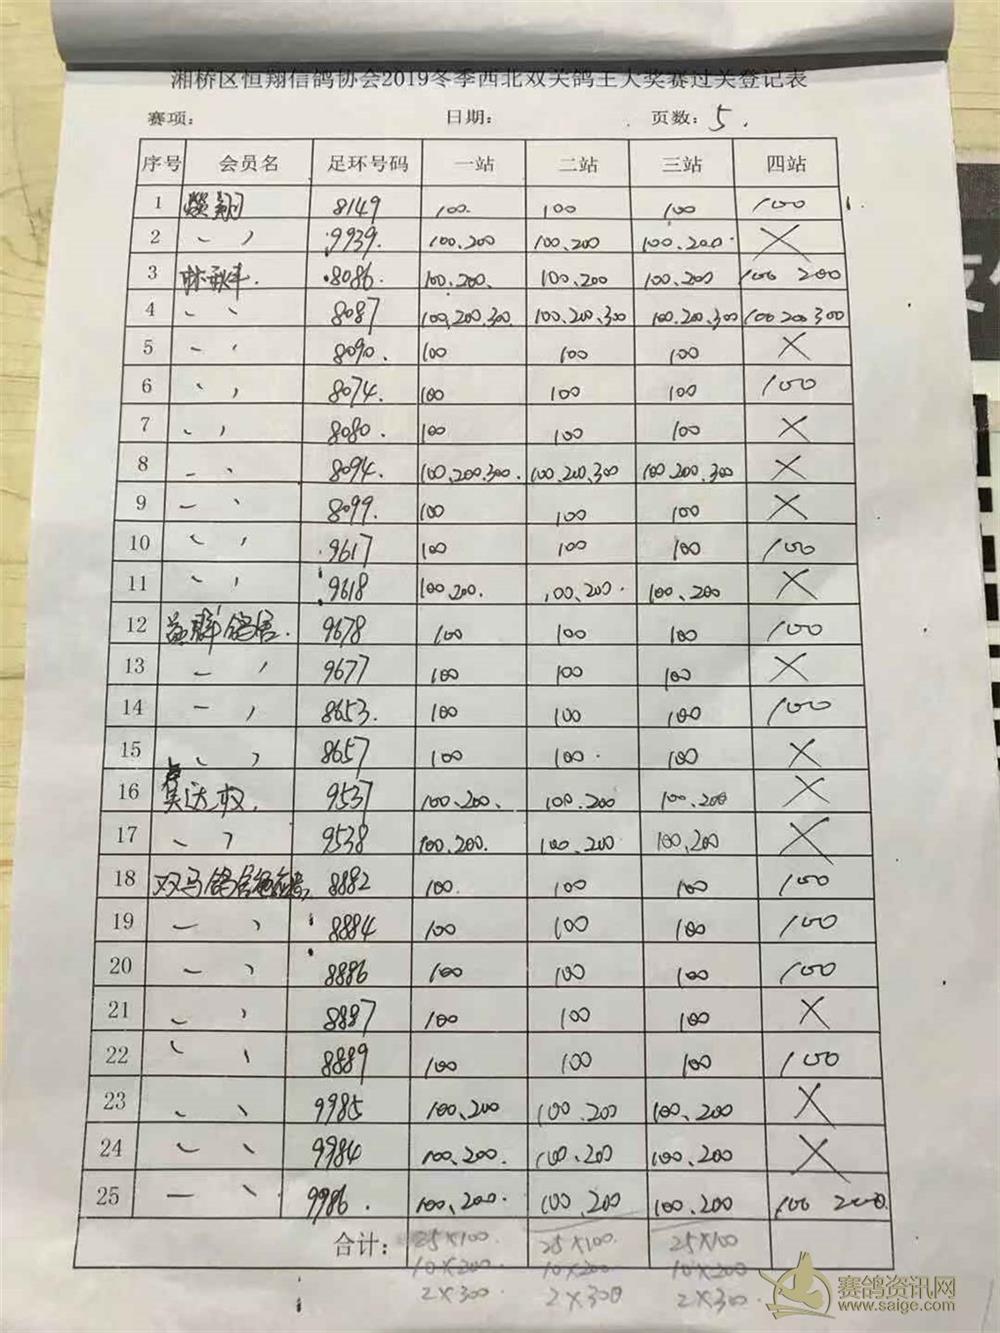 湘桥区恒翔信鸽协会2019冬季西北双关鸽王大奖赛过关登记表
赛项: 日期: 页数: 5.
序号 会员名 足环号码 一站 二站 三站 四站
1 翔 8149 100. 100 100 100
2 〃 9939. 100、200 100、200 100、200 ×
3 林秋丰. 8086. 100、200. 100、200 100、200 100 200
4 〃 8087 100、200、300. 100、200、300 100、200、300 100 200 300
5 〃 8090. 100 100 100 ×
6 〃 8074. 100 100 100 100
7 〃 8080. 100 100 100 ×
8 〃 8094. 100、200、300. 100、200、300 100、200、300 ×
9 〃 8099. 100 100 100 ×
10 〃 9617 100 100 100 100
11 〃 9618 100、200. 100、200. 100、200 ×
12 益群鸽居. 9678 100 100 100 100
13 〃 9677 100 100 100 ×
14 〃 8653. 100 100 100 100
15 〃 8657 100 100. 100 ×
16 吴达权. 9537 100、200. 100、200 100、200 ×
17 〃 9538 100、200. 100、200 100、200 ×
18 双马鸽舍 8882 100. 100 100 100
19 〃 8884 100 100 100 100
20 〃 8886 100 100 100 100
21 〃 8887 100 100 100 ×
22 〃 8889 100 100 100 100
23 〃 9985 100、200 100、200 100、200 ×
24 〃 9984 100、200. 100、200 100、200 ×
25 〃 9986. 100、200. 100、200 100、200 100 200.
合计: 25×100. 25×100. 25×100
10×200 10×200 10×200
2×300. 2×300 2×300.
赛鸽资讯网
www.saige.com